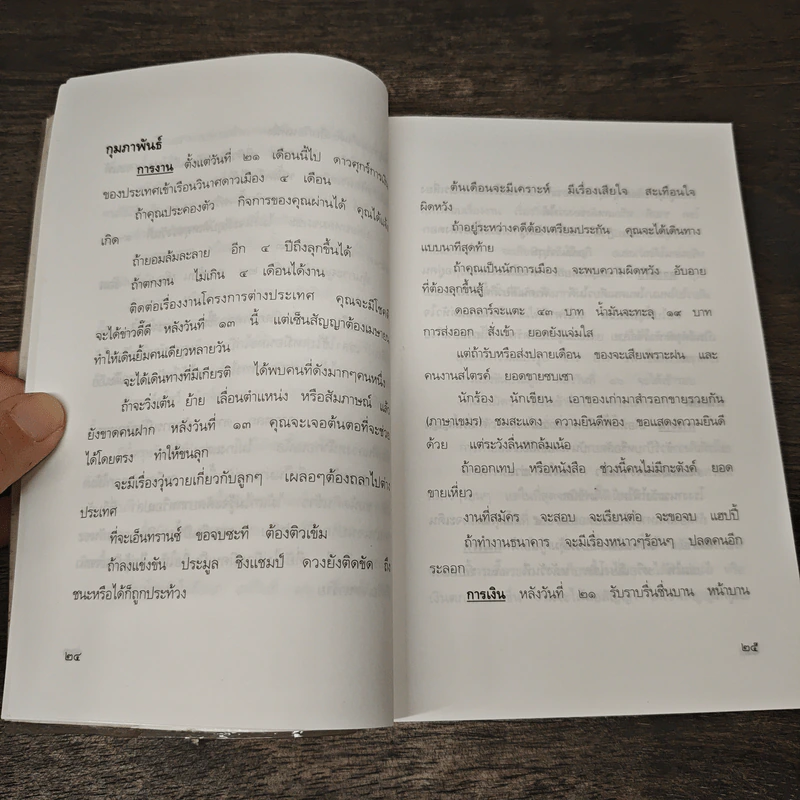 กุมภาพันธ์
การงาน ตั้งแต่วันที่ ๒๑ เดือนนี้ไป ดาวศุกร์การเงิน
ของประเทศเข้าเรือนวินาศดาวเมือง ๔ เดือน
ถ้าคุณประคองตัว กิจการของคุณผ่านได้ คุณได้แจ้ง
เกิด
ถ้ายอมล้มละลาย อีก ๔ ปีถึงลุกขึ้นได้
ถ้าตกงาน ไม่เกิน ๔ เดือนได้งาน
ติดต่อเรื่องงานโครงการต่างประเทศ คุณจะมีโชคดี
จะได้ข่าวดี๊ดี หลังวันที่ ๑๓ นี้ แต่เซ็นสัญญาต้องเมษายน
ทำให้เดินยิ้มคนเดียวหลายวัน
จะได้เดินทางที่มีเกียรติ ได้พบคนที่ดังมากๆคนหนึ่ง
ถ้าจะวิ่งเต้น ย้าย เลื่อนตำแหน่ง หรือสัมภาษณ์ แล้ว
ยังขาดคนฝาก หลังวันที่ ๑๓ คุณจะเจอต้นตอที่จะช่วย
ได้โดยตรง ทำให้ขนลุก
จะมีเรื่องวุ่นวายเกี่ยวกับลูกๆ เผลอๆต้องถลาไปต่าง
ประเทศ
ที่จะเอ็นทรานซ์ ขอจบซะที ต้องติวเข้ม
ถ้าลงแข่งขัน ประมูล ชิงแชมป์ ดวงยังติดขัด ถึง
ชนะหรือได้ก็ถูกประท้วง
๒๔
ต้นเดือนจะมีเคราะห์ มีเรื่องเสียใจ สะเทือนใจ
ผิดหวัง
ถ้าอยู่ระหว่างคดีต้องเตรียมประกัน คุณจะได้เดินทาง
แบบนาทีสุดท้าย
ถ้าคุณเป็นนักการเมือง จะพบความผิดหวัง อับอาย
ที่ต้องลุกขึ้นสู้
ดอลลาร์จะแตะ ๔๓ บาท น้ำมันจะทะลุ ๑๙ บาท
การส่งออก สั่งเข้า ยอดยังแจ่มใส
แต่ถ้ารับหรือส่งปลายเดือน ของจะเสียเพราะฝน และ
คนงานสไตรค์ ยอดขายซบเซา
นักร้อง นักเขียน เอาของเก่ามาสำรอกขายรวยกัน
(ภาษาเขมร) ชมสะแดง ความยินดีพ่อง ขอแสดงความยินดี
ด้วย แต่ระวังลื่นหกล้มเน้อ
ถ้าออกเทป หรือหนังสือ ช่วงนี้คนไม่มีกะตังค์ ยอด
ขายเหี่ยว
งานที่สมัคร จะสอบ จะเรียนต่อ จะขอจบ แฮปปี้
ถ้าทำงานธนาคาร จะมีเรื่องหนาวๆร้อนๆ ปลดคนอีก
ระลอก
การเงิน หลังวันที่ ๒๑ รับราบรื่นชื่นบาน หน้าบาน
๒๕